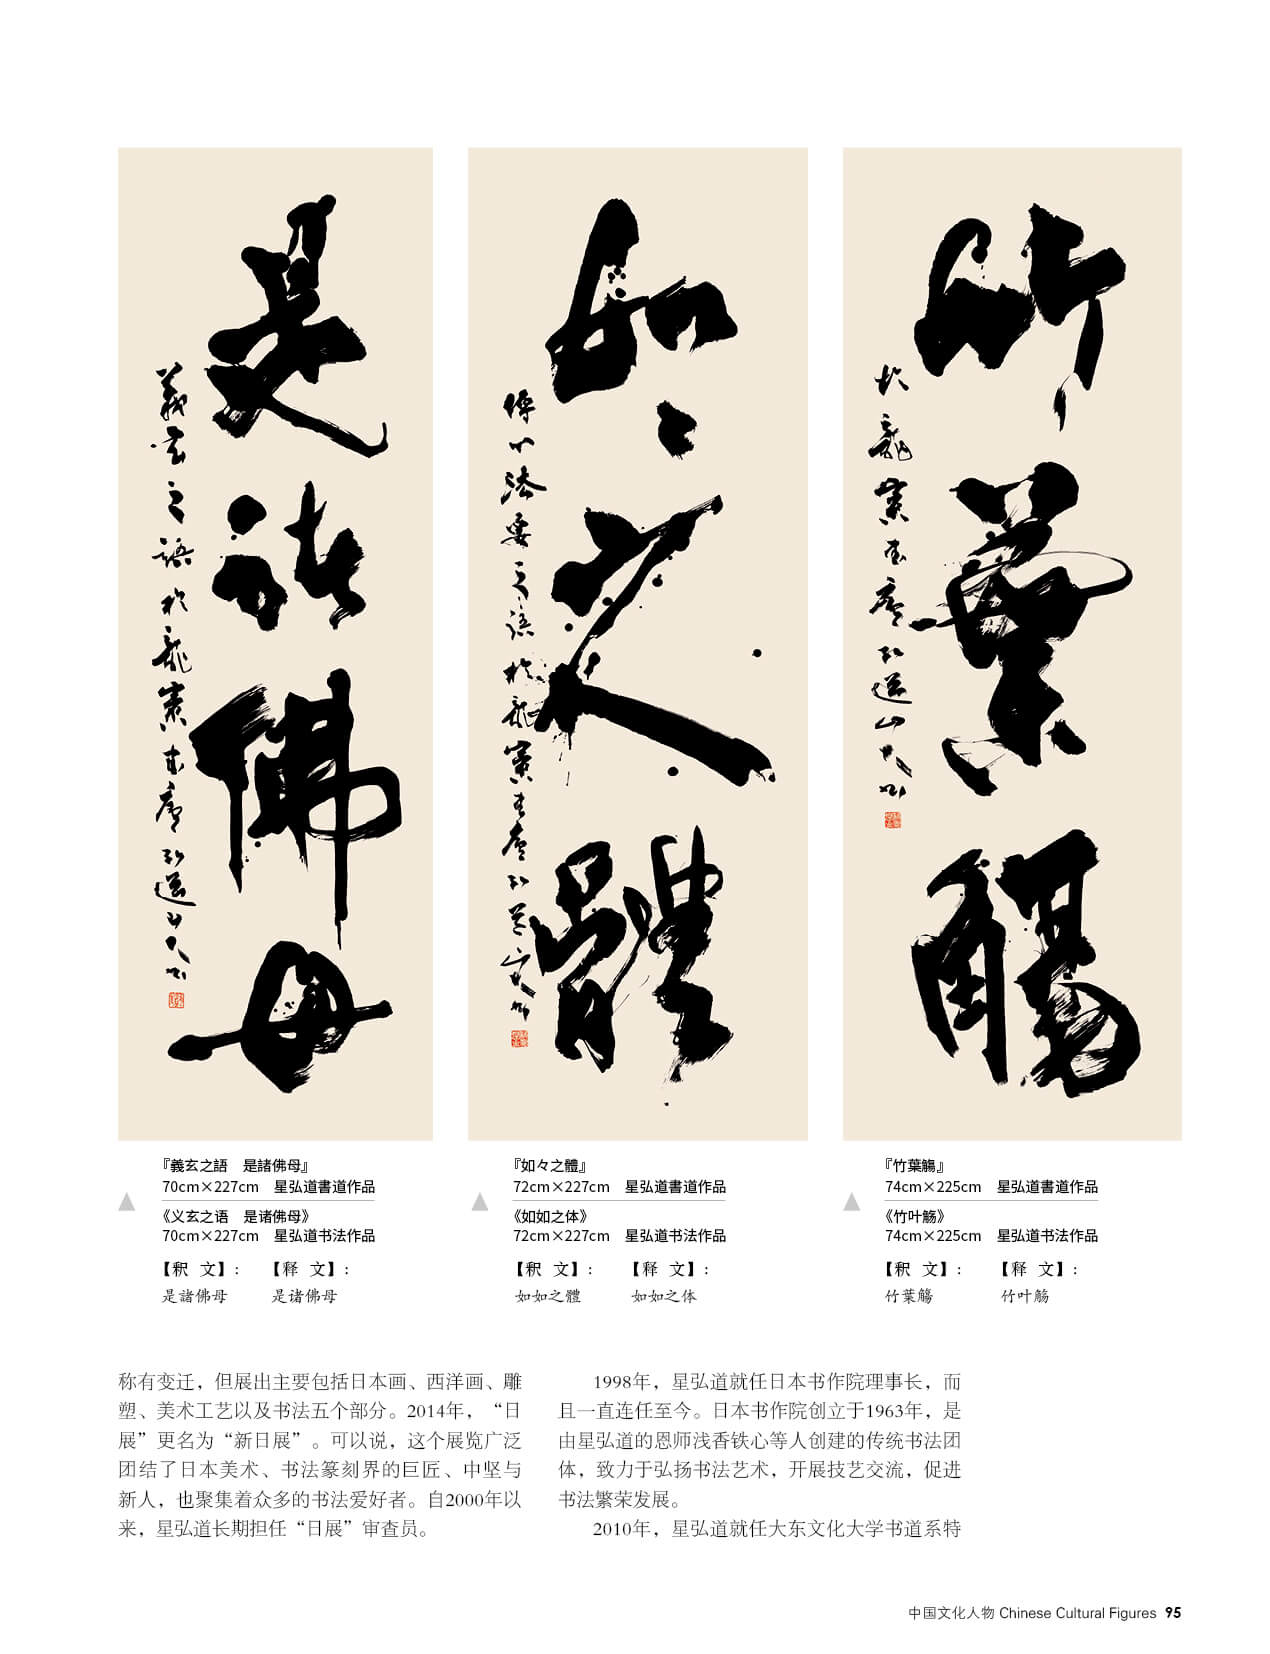 是諸佛母
義玄之語於龍窠書屋弘道
如々之體
傳心法要之語於龍窠書屋弘道
竹葉觴
於龍窠書屋弘道
『義玄之語　是諸佛母』
70cm×227cm　星弘道書道作品
《义玄之语　是诸佛母》
70cm×227cm　星弘道书法作品
【釈 文】： 【释 文】：
是諸佛母 是诸佛母
『如々之體』
72cm×227cm　星弘道書道作品
《如如之体》
72cm×227cm　星弘道书法作品
【釈 文】： 【释 文】：
如如之體 如如之体
『竹葉觴』
74cm×225cm　星弘道書道作品
《竹叶觞》
74cm×225cm　星弘道书法作品
【釈 文】： 【释 文】：
竹葉觴 竹叶觞
称有变迁，但展出主要包括日本画、西洋画、雕
塑、美术工艺以及书法五个部分。2014年，“日
展”更名为“新日展”。可以说，这个展览广泛
团结了日本美术、书法篆刻界的巨匠、中坚与
新人，也聚集着众多的书法爱好者。自2000年以
来，星弘道长期担任“日展”审查员。
1998年，星弘道就任日本书作院理事长，而
且一直连任至今。日本书作院创立于1963年，是
由星弘道的恩师浅香铁心等人创建的传统书法团
体，致力于弘扬书法艺术，开展技艺交流，促进
书法繁荣发展。
2010年，星弘道就任大东文化大学书道系特
中国文化人物 Chinese Cultural Figures 95